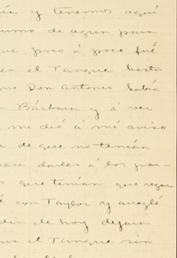 ía y tenemos aquí
sumo de agua para
que poco á poco fué
en el Tanque hasta
mo Don Antonio había
Bárbara y á ver
me dió á mí aviso
de que no tenían
para darles á los
que tenían que regar
con Taylor y arreglé
de hoy dejara
el Tanque sin